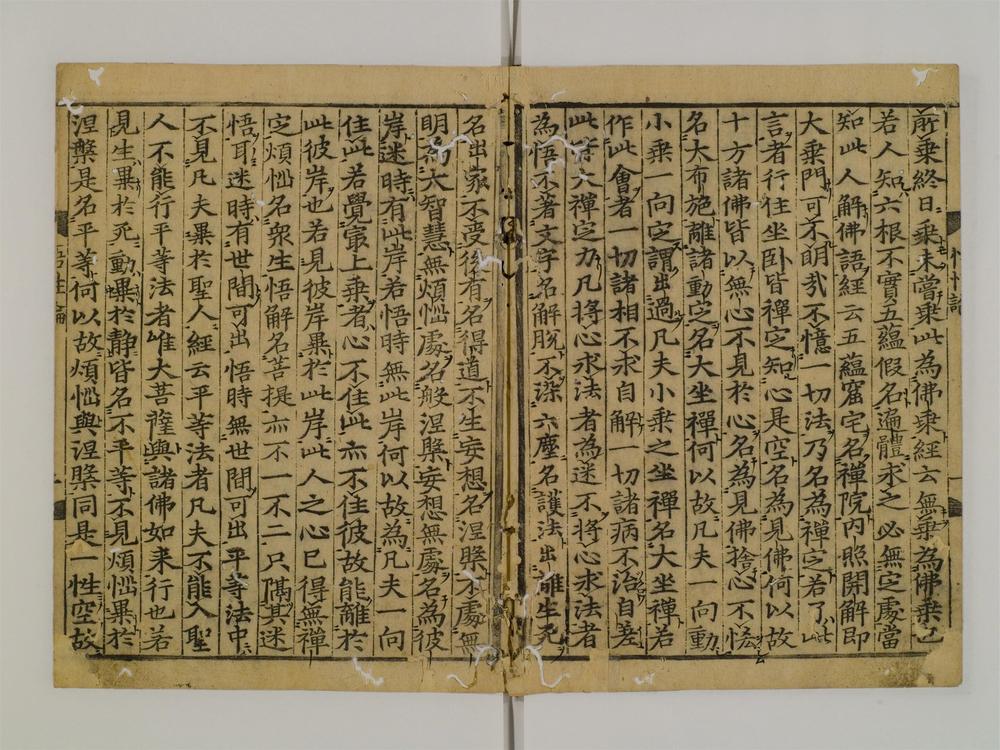 所乗終日乗未嘗乗此為佛乗經云無乗為佛乗也
若人知六根不實五蘊假名遍體求之必無定處當
知此人解佛語經云五蘊窟宅名禪院内照開解即
大乗門可不明哉不憶一切法乃名為禪定若了此
言者行住坐卧皆禪定知心是空名為見佛何以故
十方諸佛皆以無心不見於心名為見佛捨心不悋
名大布施離諸動定名大坐禪何以故凡夫一向動
小乗一向定謂出過凡夫小乗之坐禪名大坐禪若
作此會者一切諸相不求自解一切諸病不治自差
此皆大禪定力凡將心求法者為迷不將心求法者
為悟不著文字名解脫不染六塵名護法出離生死
名出家不受後有名得道不生妄想名涅槃不處無
明為大智慧無煩惱處名般涅槃妄想無處名為彼
岸迷時有此岸若悟時無此岸何以故為凡夫一向
住此若覺㝡上乗者心不住此亦不住彼故能離於
此彼岸也若見彼岸異於此岸此人之心已得無禪
定煩惱名衆生悟解名菩提亦不一不二只隔其迷
悟耳迷時有世間可出悟時無世間可出平等法中
不見凡夫異於聖人經云平等法者凡夫不能入聖
人不能行平等法者唯大菩薩與諸佛如来行也若
見生異於死動異於静皆名不平等不見煩惱異於
涅槃是名平等何以故煩惱與涅槃同是一性空故
悟性論